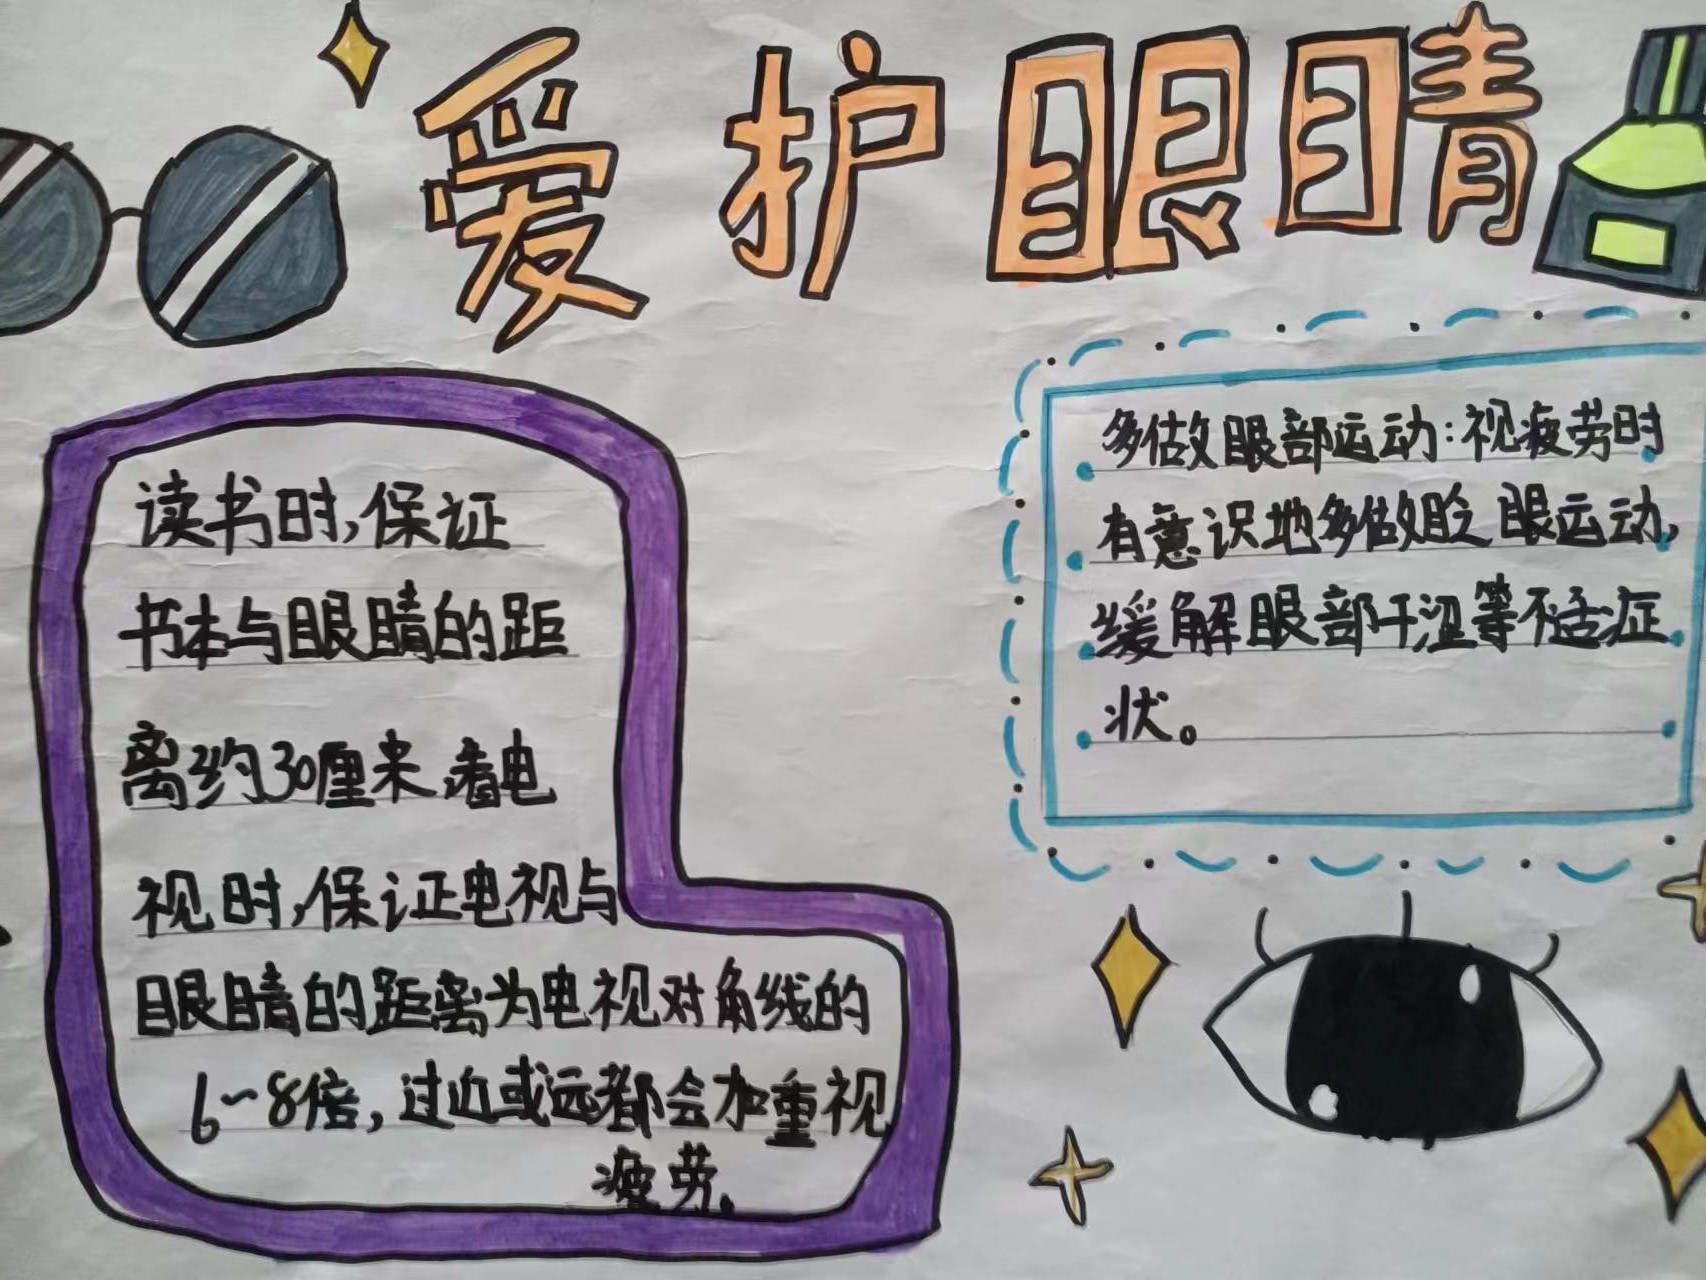 爱护眼睛
读书时,保证
书本与眼睛的距
离约30厘米,看电
视时,保证电视与
眼睛的距离为电视对角线的
6~8倍,过近或远都会加重视
疲劳.
多做眼部运动:视疲劳时
有意识地多做眨眼运动,
缓解眼部干涩等不适症
状。